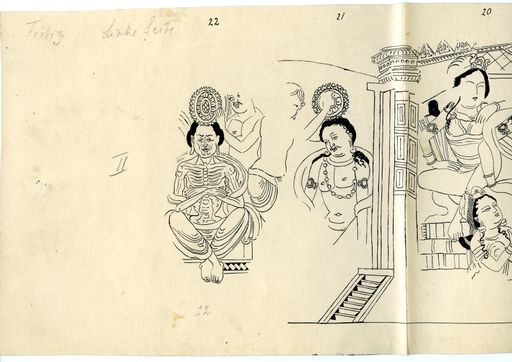 Fertig Linke Seite
22
21
20
II
22